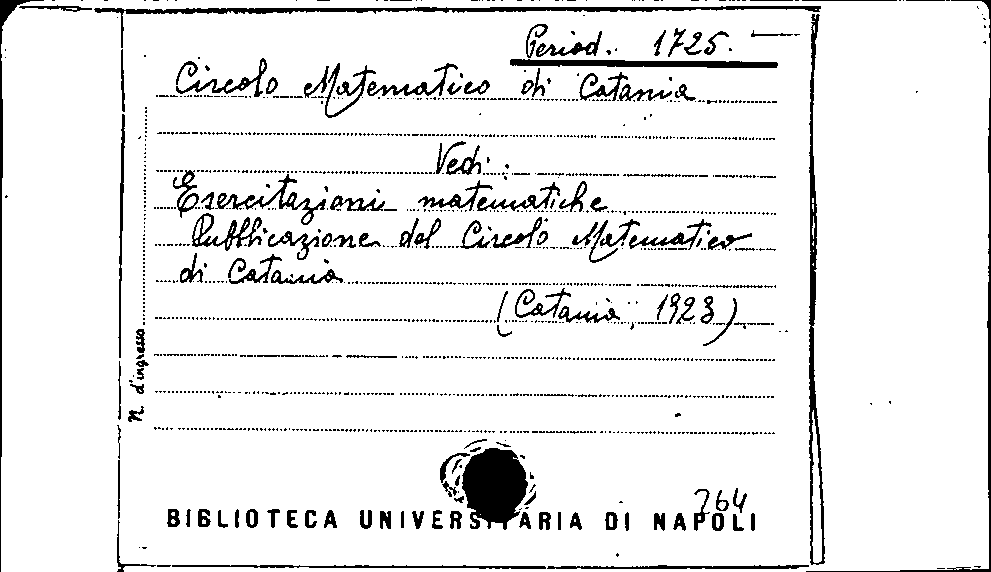 Period. 1725.
Circolo Matematico di Catania.
Vedi:
Esercitazioni matematiche
Pubblicazione del Circolo Matematico
di Catania
(Catania, 1923).
N. d'ingresso
264
BIBLIOTECA UNIVERSITARIA DI NAPOLI